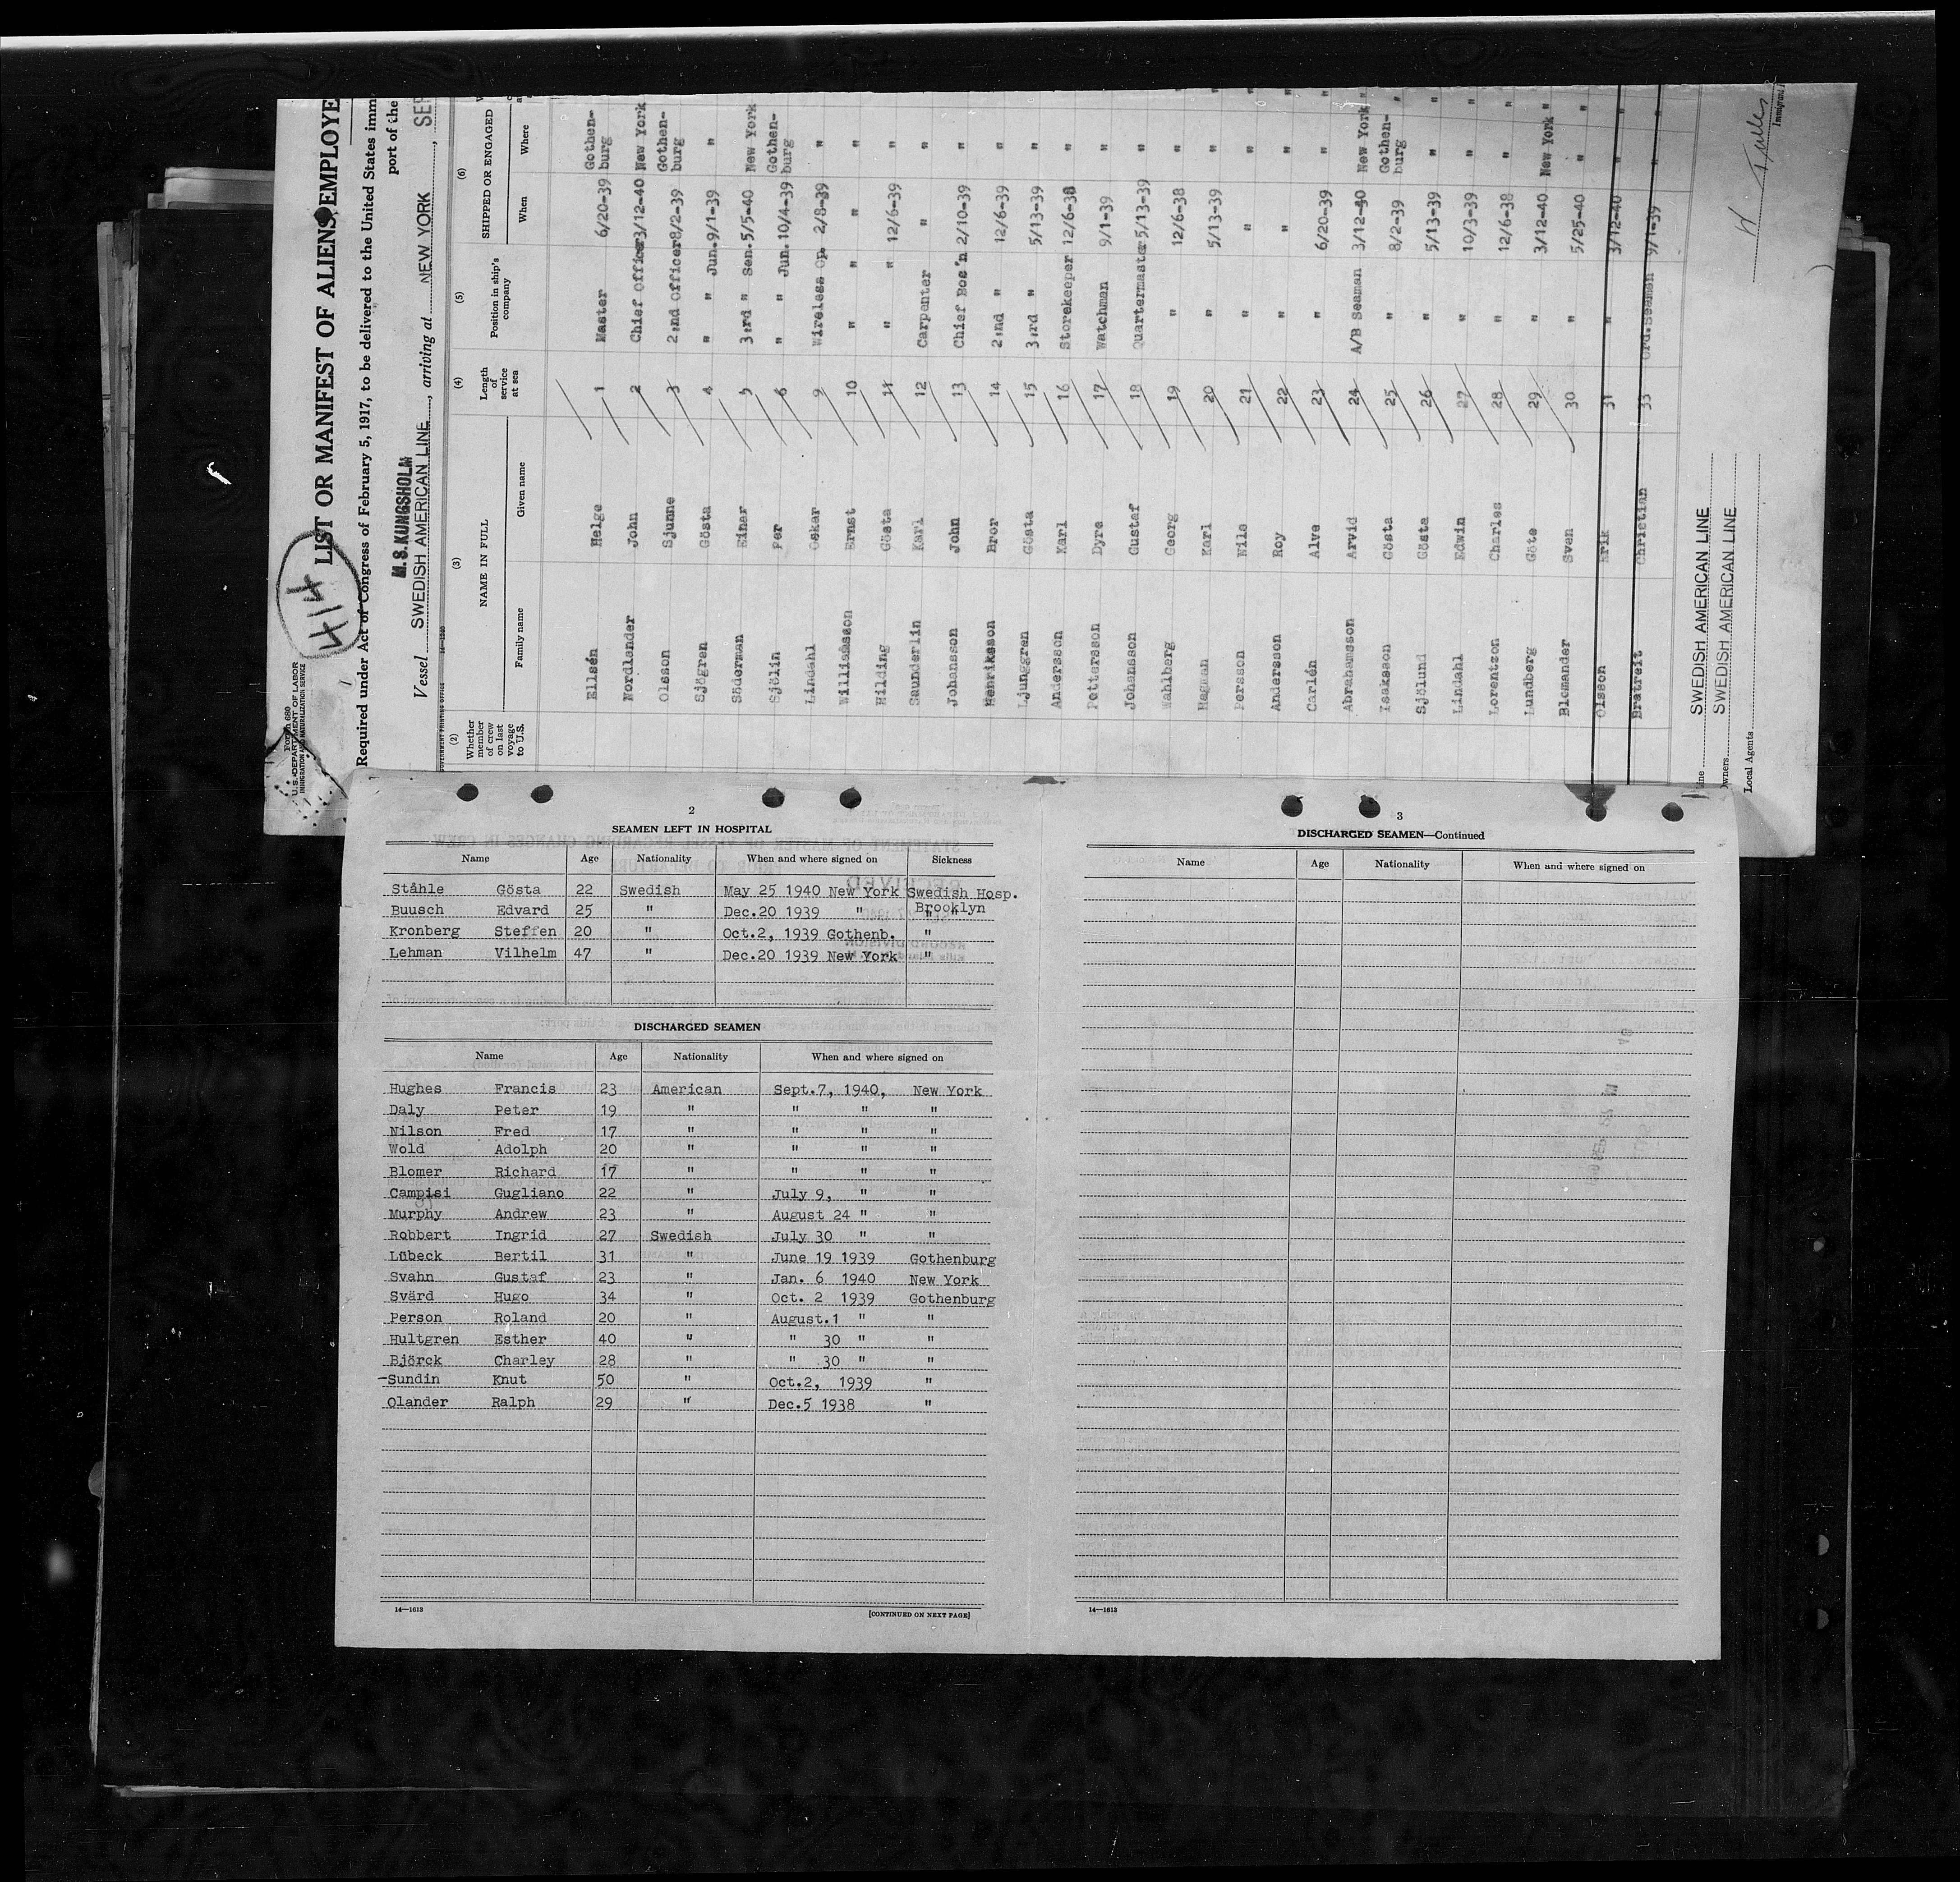 Form 680
U.S. DEPARTMENT OF LABOR
IMMIGRATION AND NATURALIZATION SERVICE
414
LIST OR MANIFEST OF ALIENS EMPLOYE
Required under Act of Congress of February 5, 1917, to be delivered to the United States imm
port of the
M.S. KUNGSHOLM
Vessel SWEDISH AMERICAN LINE, arriving at NEW YORK, SE
GOVERNMENT PRINTING OFFICE
(2) (3) (4) (5) (6)
Whether member of crew on last voyage to U.S. NAME IN FULL Length of service at sea Position in ship's company SHIPPED OR ENGAGED
Family name Given name When Where
Ellsén Helge 1 Master 6/20-39 Gothen-burg
Nordlander John 2 Chief Officer 3/12-40 New York
Olsson Sjunne 3 2:nd Officer 8/2-39 Gothen-burg
Sjögren Gösta 4 " " Jun. 9/1-39 "
Söderman Einar 5 3:rd " Sen. 5/5-40 New York
Sjölin Per 6 " " Jun. 10/4-39 Gothen-burg
Lindahl Oskar 9 Wireless Op. 2/8-39 "
Williamsson Ernst 10 " " " "
Hilding Gösta 11 " " 12/6-39 "
Saunderlin Karl 12 Carpenter " "
Johansson John 13 Chief Bos'n 2/10-39 "
Henriksson Bror 14 2:nd " 12/6-39 "
Ljunggren Gösta 15 3:rd " 5/13-39 "
Andersson Karl 16 Storekeeper 12/6-38 "
Pettersson Dyre 17 Watchman 9/1-39 "
Johansson Gustaf 18 Quartermaster 5/13-39 "
Wahlberg Georg 19 " 12/6-38 "
Hagman Karl 20 " 5/13-39 "
Persson Nils 21 " " "
Andersson Roy 22 " " "
Carlén Alve 23 " 6/20-39 "
Abrahamsson Arvid 24 A/B Seaman 3/12-40 New York "
Isaksson Gösta 25 " 8/2-39 Gothen-burg "
Sjölund Gösta 26 " 5/13-39 " "
Lindahl Edwin 27 " 10/3-39 " "
Lorentzon Charles 28 " 12/6-38 " "
Lundberg Göte 29 " 3/12-40 New York "
Blomander Sven 30 " 5/25-40 " "
Olsson Erik 31 " 3/12-40 " "
Bratreit Christian 33 Ord.Seaman 9/1-39 " "
Line SWEDISH AMERICAN LINE
Owners SWEDISH AMERICAN LINE
Local Agents
2
SEAMEN LEFT IN HOSPITAL
Name Age Nationality When and where signed on Sickness
Ståhle Gösta 22 Swedish May 25 1940 New York Swedish Hosp.
Brooklyn
Buusch Edvard 25 " Dec.20 1939 " " "
Kronberg Steffen 20 " Oct.2, 1939 Gothenb. "
Lehman Vilhelm 47 " Dec.20 1939 New York "
DISCHARGED SEAMEN
Name Age Nationality When and where signed on
Hughes Francis 23 American Sept.7, 1940, New York
Daly Peter 19 " " " "
Nilson Fred 17 " " " "
Wold Adolph 20 " " " "
Blomer Richard 17 " " " "
Campisi Gugliano 22 " July 9, " "
Murphy Andrew 23 " August 24 " "
Robbert Ingrid 27 Swedish July 30 " "
Lübeck Bertil 31 " June 19 1939 Gothenburg
Svahn Gustaf 23 " Jan. 6 1940 New York
Svärd Hugo 34 " Oct. 2 1939 Gothenburg
Person Roland 20 " August.1 " "
Hultgren Esther 40 " " 30 " "
Björck Charley 28 " " 30 " "
-Sundin Knut 50 " Oct.2, 1939 "
Olander Ralph 29 " Dec.5 1938 "
14—1613
[CONTINUED ON NEXT PAGE]
3
DISCHARGED SEAMEN—Continued
Name Age Nationality When and where signed on
14—1613